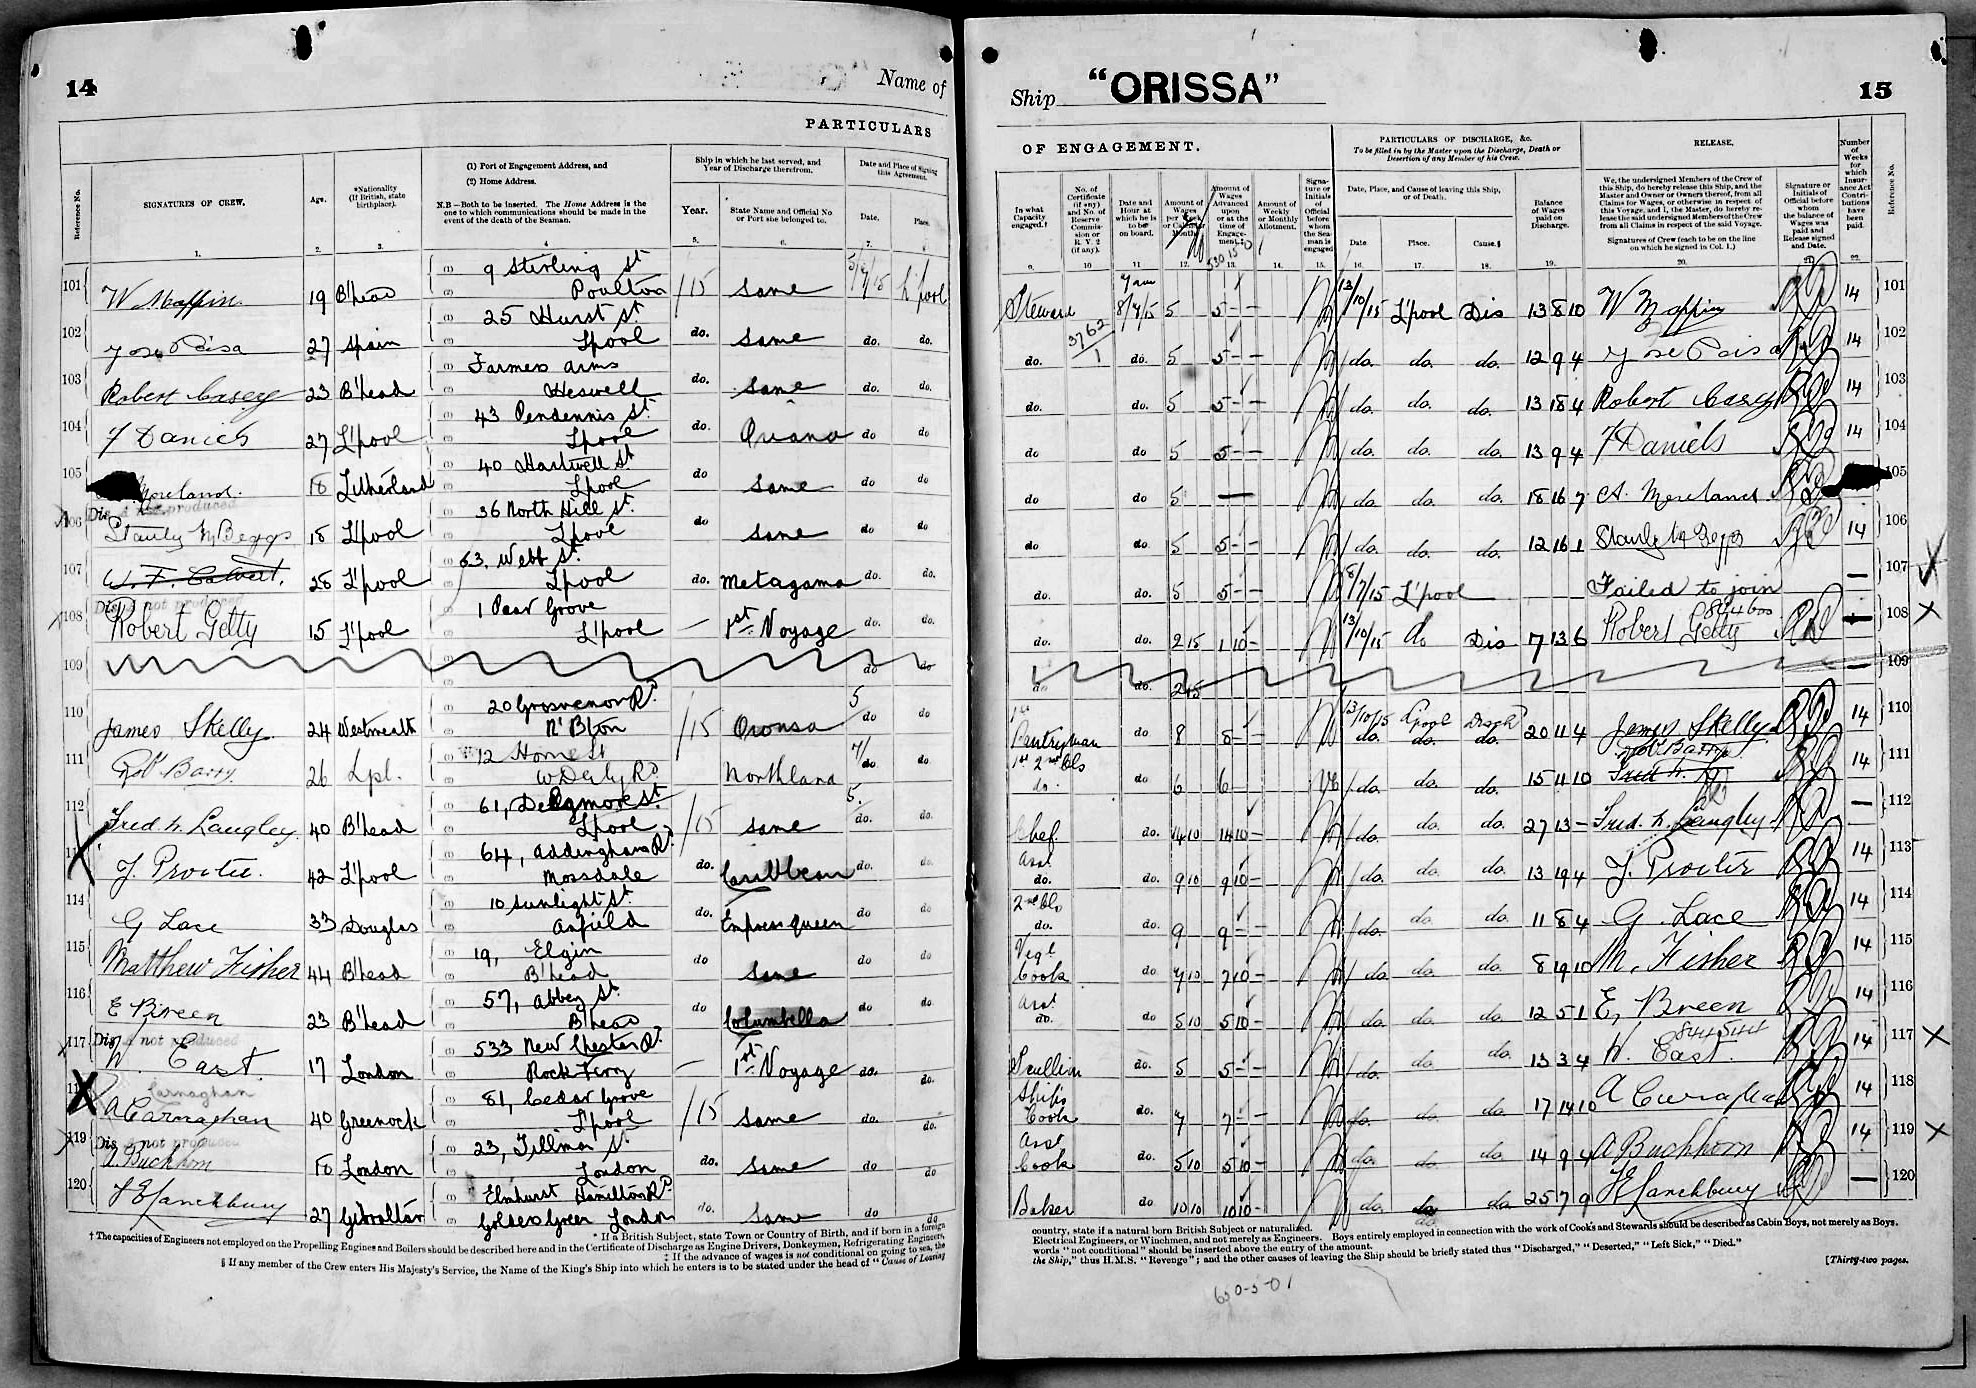 14
Name of
PARTICULARS
Reference No.
SIGNATURES OF CREW.
Age.
*Nationality
(If British, state
birthplace).
(1) Port of Engagement Address, and
(2) Home Address.
N.B—Both to be inserted. The Home Address is the
one to which communications should be made in the
event of the death of the Seaman.
Ship in which he last served, and
Year of Discharge therefrom.
Year.
State Name and Official No
or Port she belonged to.
Date and Place of Signing
this Agreement.
Date.
Place.
1. 2. 3. 4 5. 6. 7. 8
101 W Maffin 19 B'head 9 Sterling St Poulton /15 same L'pool
102 Jose 27 Spain 25 Hurst St Lpool do. same do. do.
103 Robert Casey 23 B'head Farmers arms Heswell do. same do. do.
104 J Daniels 27 L'pool 43 Pendennis St Lpool do. do do
105 Moreland. 18 Litherland 40 Hartwell St Lpool do same do do
106 Dis A not produced
Stanley M Beggs 18 L'pool 36 North Hill St. Lpool do same do do
107 W. F. Calvert. 28 L'pool 63, Webb St. Lpool do. Metagama do. do.
108 Dis A not produced
Robert Getty 15 L'pool 1 Pear Grove L'pool — 1st Voyage do. do.
109 do do
110 James Skelly. 24 Westmeath 20 Grosvenor Rd N'Bton /15 Oronsa 5 do do
111 Robt Barry. 26 Lpl. 12 Home St W Derby Rd Northland 7/ do. do.
112 Fred h. Langley. 40 B'head 61, St Lpool /15 same 5. do. do.
113 J. Procter. 42 L'pool 64, Addingham Rd. Mossdale do. Caribbean do. do.
114 G Lace 33 Douglas 10 Sunlight St. Anfield do. Empress queen do do
115 Matthew Fisher 44 B'head 19, Elgin B'head do same do do
116 E Breen 23 B'head 57, Abbey St. B'head do Columbella do do
117 Dis A not produced
W. East. 17 London 533 New Chester Rd. Rock Ferry — 1st Voyage do. do.
118 Carnaghan
A Carnaghan 40 Greenock 81, Cedar Grove L'pool /15 same do. do.
119 Dis A not produced
A Buckhorn 18 London 23, Tillman St. London do. same do do
120 27 Gibraltar Elmhurst Hamilton Rd Golders Green London do. same do do
* If a British Subject, state Town or Country of Birth, and if born in a foreign
† The capacities of Engineers not employed on the Propelling Engines and Boilers should be described here and in the Certificate of Discharge as Engine Drivers, Donkeymen, Refrigerating Engineers,
‡ If the advance of wages is not conditional on going to sea, the
§ If any member of the Crew enters His Majesty's Service, the Name of the King's Ship into which he enters is to be stated under the head of "Cause of Leaving
Ship "ORISSA"
15
OF ENGAGEMENT.
PARTICULARS OF DISCHARGE, &c.
To be filled in by the Master upon the Discharge, Death or
Desertion of any Member of his Crew.
RELEASE.
Number
of
Weeks
for
which
Insur-
ance Act
Contri-
butions
have
been
paid.
Reference No.
In what
Capacity
engaged.†
No. of
Certificate
(if any)
and No. of
Reserve
Commis-
sion or
R. V. 2
(if any).
Date and
Hour at
which he is
to be
on board.
Amount of
Wages
per Week
or Calendar
Month.
Amount of
Wages
Advanced
upon
or at the
time of
Engage-
ment.‡
Amount of
Weekly
or Monthly
Allotment.
Signa-
ture or
Initials
of
Official
before
whom
the Sea-
man is
engaged
Date, Place, and Cause of leaving this Ship,
or of Death.
Date
Place.
Cause.§
Balance
of Wages
paid on
Discharge.
We, the undersigned Members of the Crew of
this Ship, do hereby release this Ship, and the
Master and Owner or Owners thereof, from all
Claims for Wages, or otherwise in respect of
this Voyage, and I, the Master, do hereby re-
lease the said undersigned Members of the Crew
from all Claims in respect of the said Voyage.
Signatures of Crew (each to be on the line
on which he signed in Col. 1.)
Signature or
Initials of
Official before
whom
the balance of
Wages was
paid and
Release signed
and Date.
9. 10 11 12. 13. 14. 15. 16. 17. 18. 19. 20. 21. 22.
Steward 7 am 5 5 13/10/15 L'pool Dis 13 8 10 W Maffin 14 101
do. 3762/1 do. 5 5 do. do. do. 12 9 4 Jose 14 102
do. do. 5 5 do. do. do. 13 18 4 Robert Casey 14 103
do do 5 5 do. do. do. 13 9 4 J Daniels 14 104
do do 5 — do. do. do. 18 16 7 A. Moreland 105
do do. 5 5 do. do. do. 12 16 1 Stanley M Beggs 14 106
do. do. 5 5 L'pool — Failed to join — 107
do. do. 2 15 1 10 13/10/15 do Dis 7 13 6 844600 Robert Getty 108
do do. 2 15 — 109
1st Pantryman do. 8 8 13/10/15 Lpool Dischd do. do. do. 20 11 4 James Skelly 14 110
do. do 6 6 do. do. do. 15 11 10 Robt Barry 14 111
Chef do. 14 10 14 10 do. do. do. 27 13 — Fred. h. Langley — 112
Asst do. do. 9 10 9 10 do. do. do. 13 19 4 J. Procter 14 113
do. do. 9 9 do. do. do. 11 8 4 G. Lace 14 114
Vegt Cook do 7 10 7 10 do. do. do. 8 19 10 M. Fisher 14 115
Asst do. do 5 10 5 10 do. do. do. 12 5 1 E, Breen 14 116
Scullion do. 5 5 do. do. do. 13 3 4 W. East. 14 117
Ship's Cook do. 7 7 do. do. do. 17 14 10 14 118
Asst Cook do. 5 10 5 10 do. do. do. 14 9 4 A Buckhorn 14 119
Baker do 10 10 10 10 do. do. do. 25 7 9 — 120
country, state if a natural born British Subject or naturalized.
Electrical Engineers, or Winchmen, and not merely as Engineers. Boys entirely employed in connection with the work of Cooks and Stewards should be described as Cabin Boys, not merely as Boys.
words "not conditional" should be inserted above the entry of the amount.
the Ship," thus H.M.S. "Revenge"; and the other causes of leaving the Ship should be briefly stated thus "Discharged," "Deserted," "Left Sick," "Died."
[Thirty-two pages.